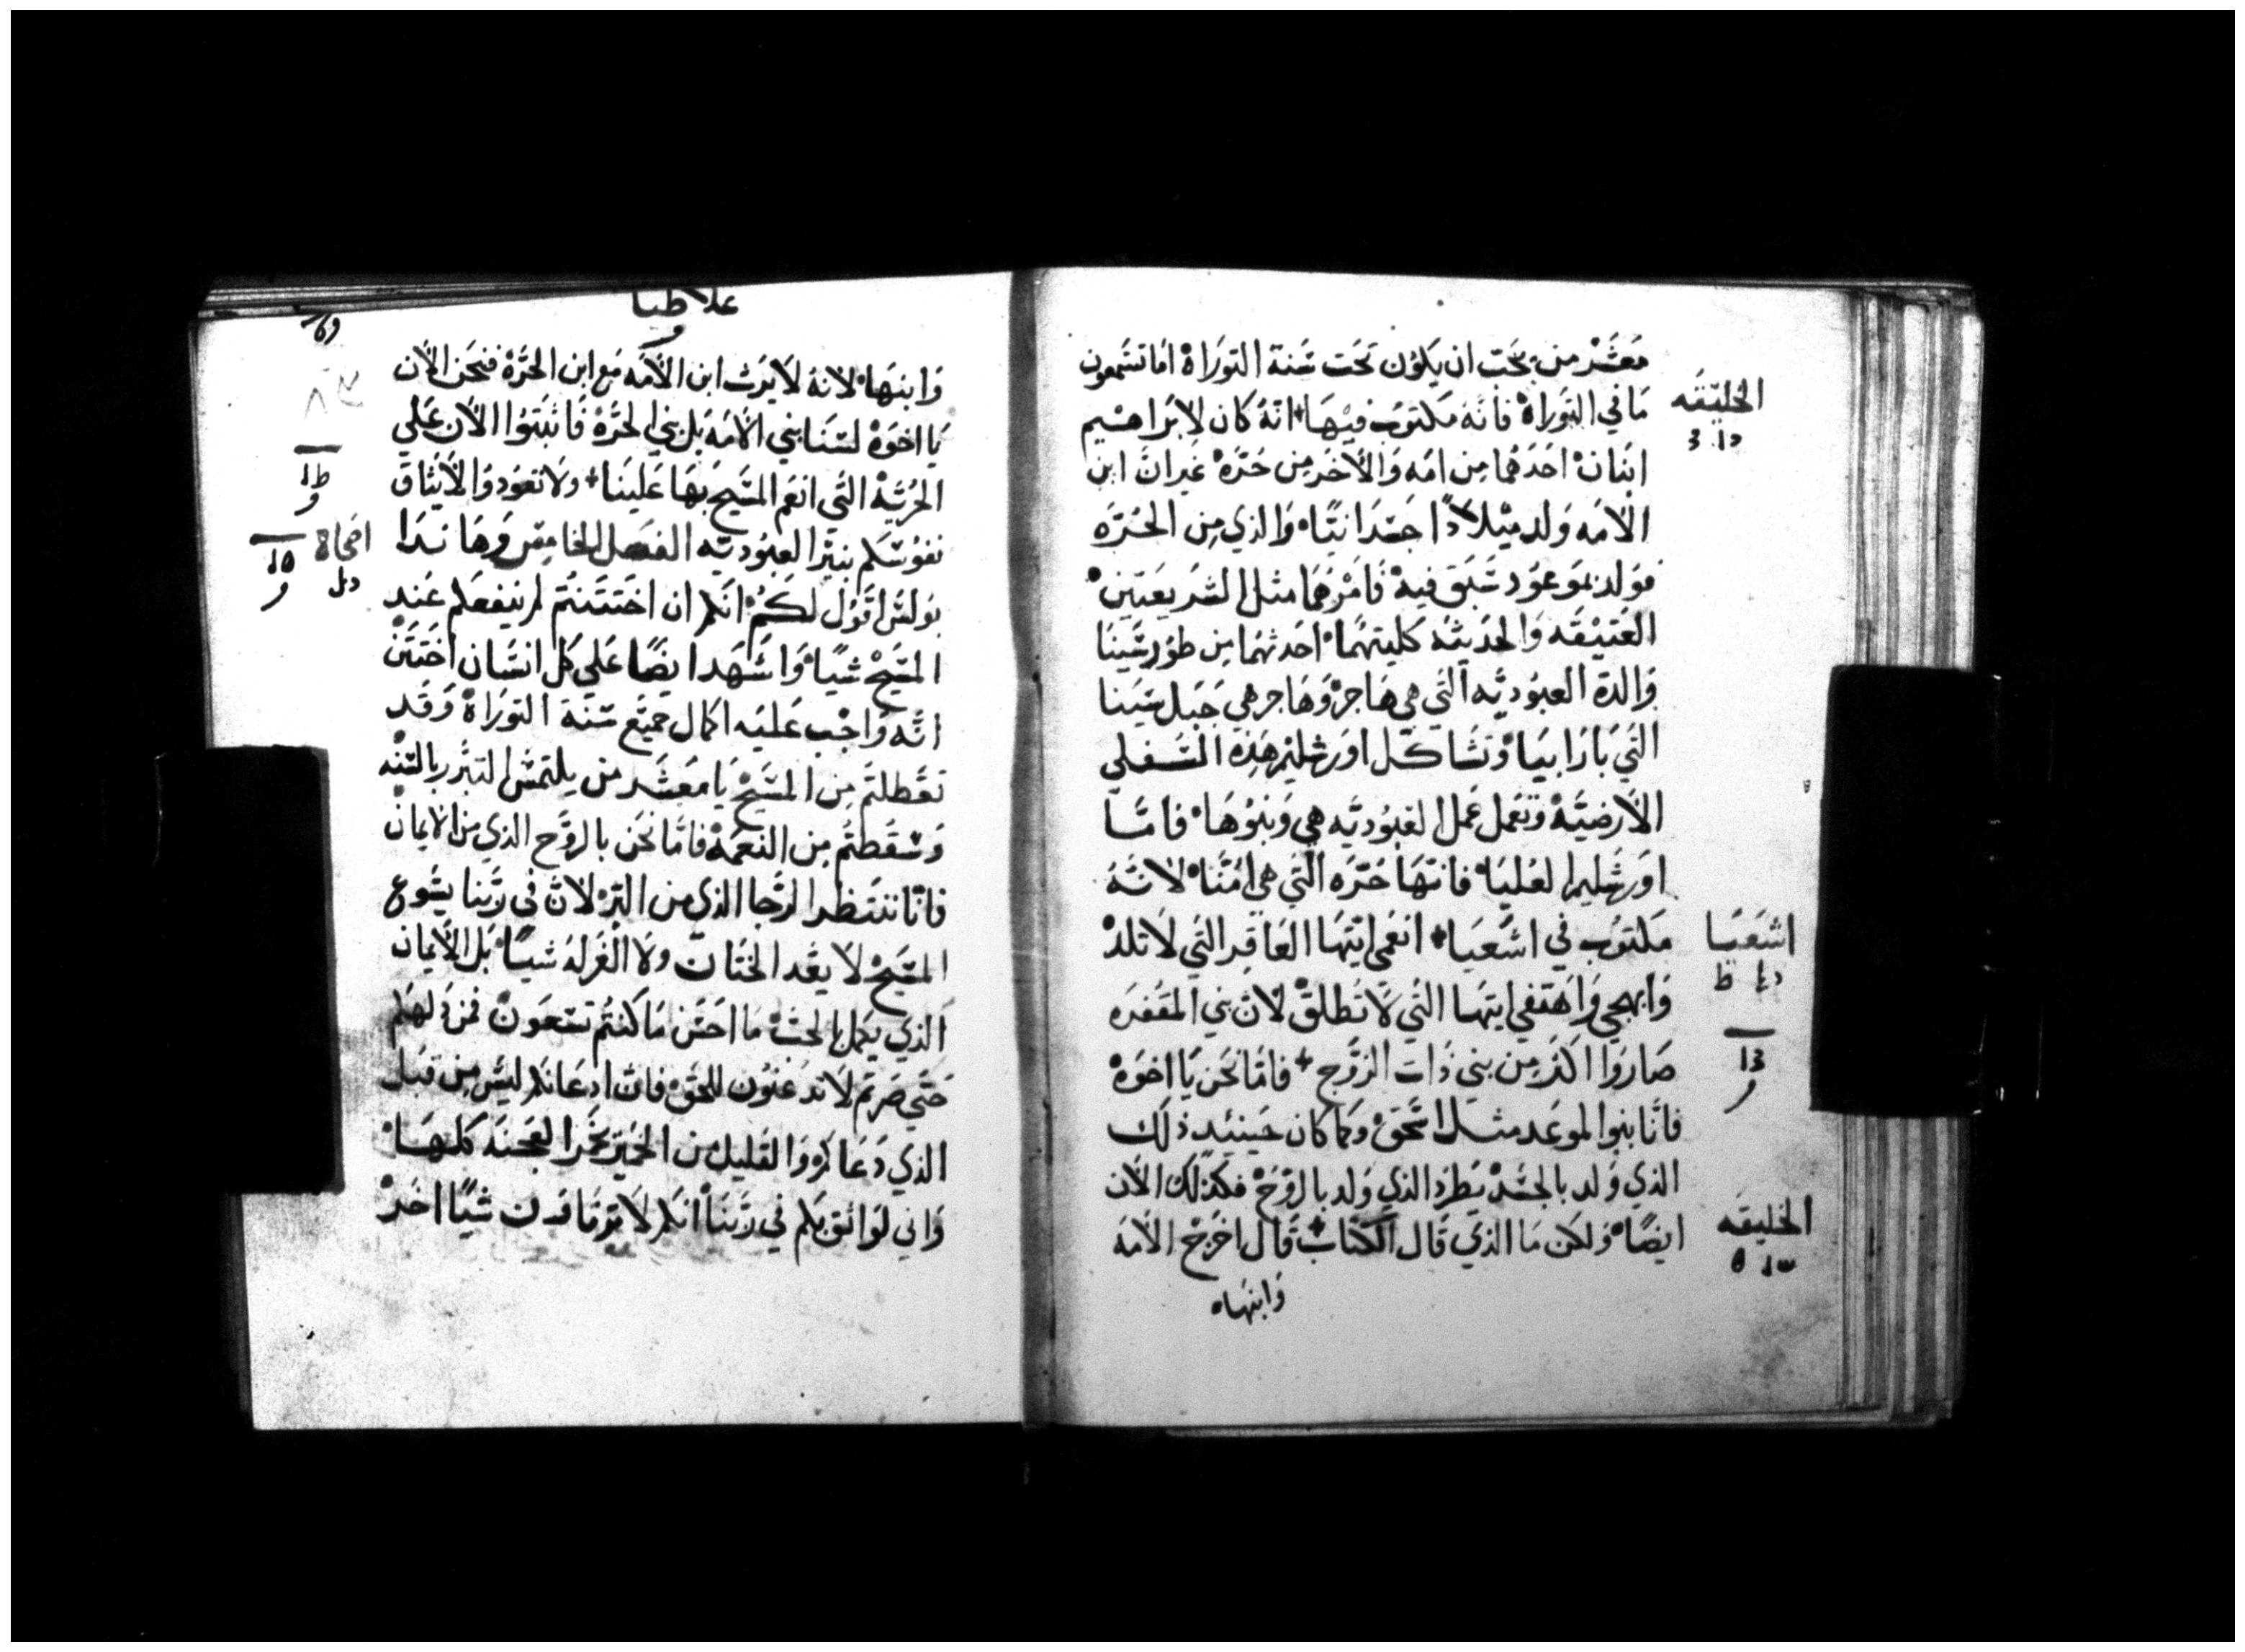 معشر من يحب ان يكون تحت سنة التوراة اما تسمعون
ما في التوراة فانه مكتوب فيها انه كان لابراهيم
الخليقه
ابنان احدهما من امه والاخر من حره غير ان ابن
الامه ولد ميلادا جسدانيا والذي من الحره
فولد بموعود سبق فيه فامرهما مثل الشريعتين
العتيقه والحديثه كليتهما احدثهما من طور سينا
والدة العبوديه التي هي هاجر وهاجر هي جبل سينا
التي بارابيا وتشاكل اورشليم هذه السفلي
الارضية وتعمل عمل العبوديه هي وبنوها فاما
اورشليم العليا فانها حره التي هي امنا لانه
مكتوب في اشعيا انعمي ايتها العاقر التي لا تلد
اشعيا
وابهجي واهتفي ايتها التي لا تطلق لان بني المقفره
صاروا اكثر من بني ذات الزوج فاما نحن يا اخوة
فانا بنوا الموعد مثل اسحق وكما كان حينيد ذلك
الذي ولد بالجسد يطرد الذي ولد بالروح فكذلك الان
ايضا ولكن ما الذي قال الكتاب قال اخرج الامه
الخليقه
وابنها
غلاطيا
وابنها لانه لا يرث ابن الامه مع ابن الحرة فنحن الان
يا اخوة لسنا بني الامه بل بني الحرة فاثبتوا الان علي
الحرية التي انعم المسيح بها علينا ولا تعودوا الايثاق
نفوسكم بنير العبوديه الفصل الخامس وها ندا
اصحاح
بولس اقول لكم انكم ان اختتنتم لم ينفعكم عند
المسيح شيا واشهد ايضا علي كل انسان اختتن
انه واجب عليه اكمال جميع سنة التوراة وقد
تعطلتم من المسيح يا معشر من يلتمس التبرر بالسنه
وسقطتم من النعمة فاما نحن بالروح الذي من الايمان
فانا ننتظر الرجا الذي من البر لان في ربنا يشوع
المسيح لا يعد الختان ولا الغرله شيا بل الايمان
الذي يكمل بالحب ما احسن ما كنتم تسعون فمن دلهكم
حتي صرتم لا تدعنون للحق فان ادعانكم ليس من قبل
الذي دعاكم والقليل من الخمير يخمر العجنه كلها
واني لواثق بكم في ربنا انكم لا ترتادون شيا اخر